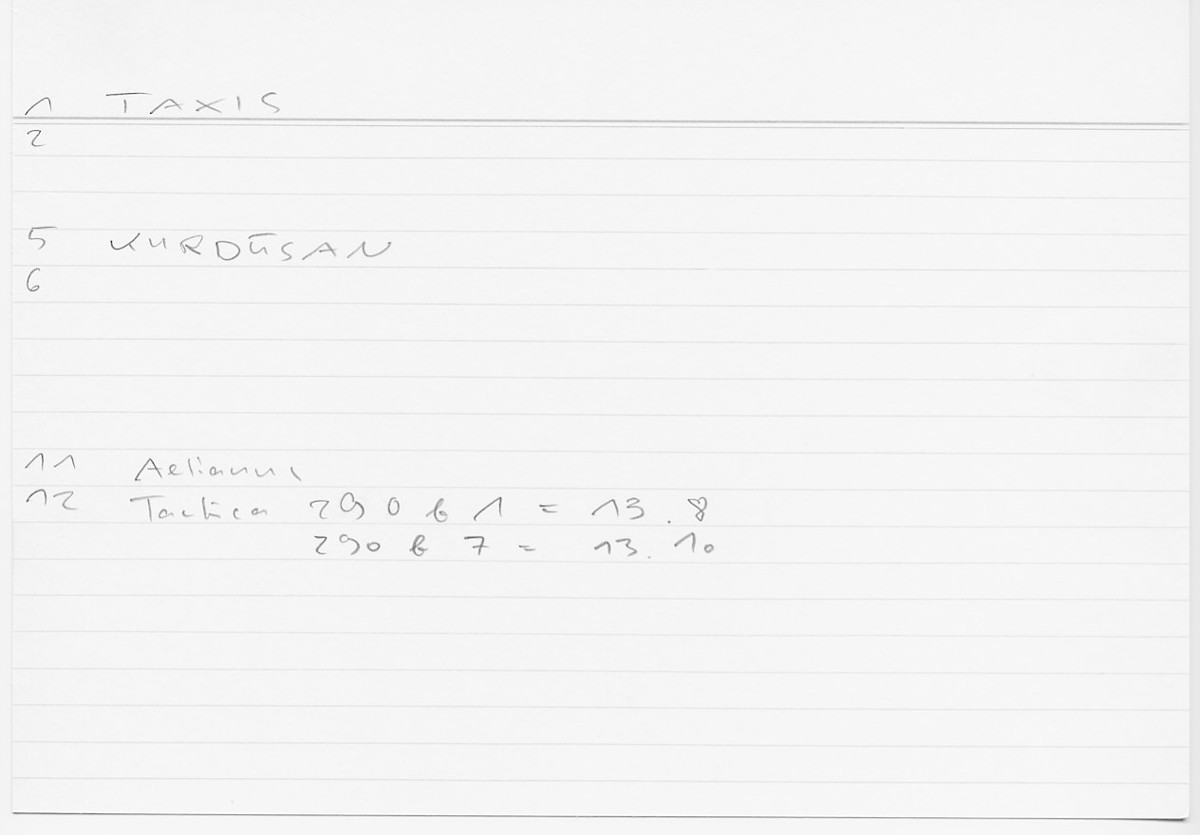 1 TAXIS
2
5 KURDŪSAN
6
11 Aelianus
12 Tactica 290 b 1 = 13.8
290 b 7 = 13.10